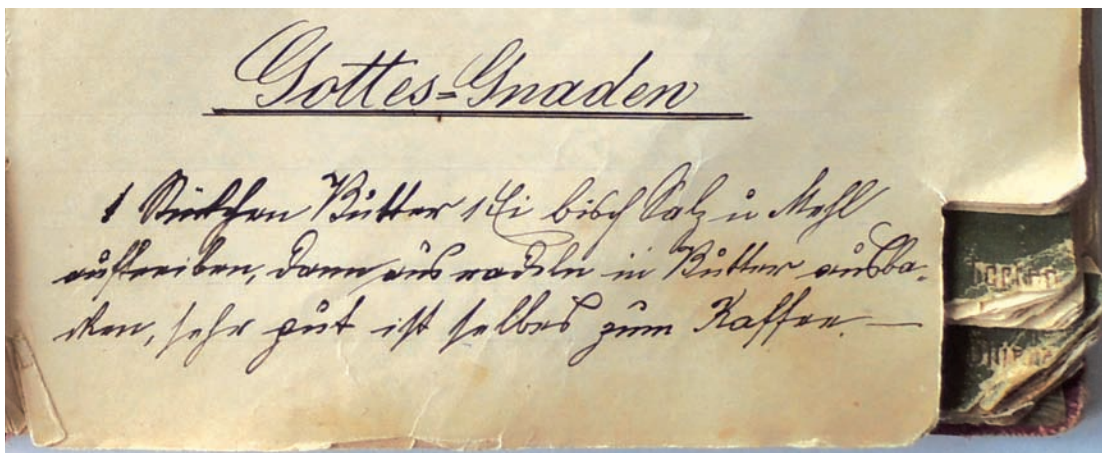 Gottes=Gnaden
1 Stückchen Butter 1 Ei bisch Salz u Mehl
auftreiben, dann ausradeln in Butter ausba-
cken, sehr gut ist selbes zum Kaffee. —